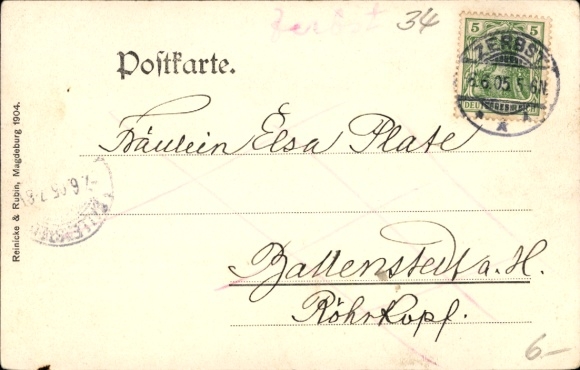 Zerbst
34
5 5
ZERBST
.6.05 5-6N.
DEUTSCHES REICH
Postkarte.
Reinicke & Rubin, Magdeburg 1904.
Fräulein Elsa Plate
6.05.7-8
BALLENSTEDT
Ballenstedt a. H.
Röhrkopf.
6-